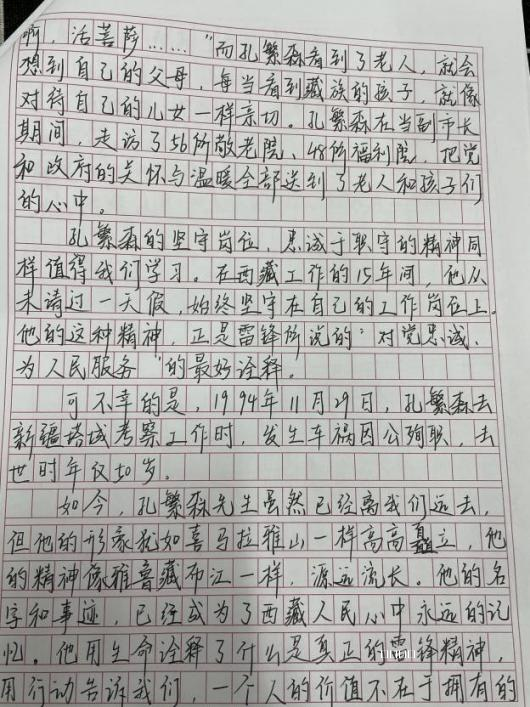 啊，活菩萨……"而孔繁森看到了老人，就会
想到自己的父母，每当看到藏族的孩子，就像
对待自己的儿女一样亲切。孔繁森在当副市长
期间，走访了56所敬老院、48所福利院，把党
和政府的关怀与温暖全部送到了老人和孩子们
的心中。
孔繁森的坚守岗位，忠诚于职守的精神同
样值得我们学习。在西藏工作的15年间，他从
未请过一天假，始终坚守在自己的工作岗位上。
他的这种精神，正是雷锋所说的"对党忠诚、
为人民服务"的最好诠释。
可不幸的是，1994年11月29日，孔繁森去
新疆塔城考察工作时，发生车祸因公殉职，去
世时年仅50岁。
如今，孔繁森先生虽然已经离我们远去，
但他的形象犹如喜马拉雅山一样高高矗立，他
的精神像雅鲁藏布江一样，源远流长。他的名
字和事迹，已经成为了西藏人民心中永远的记
忆。他用生命诠释了什么是真正的雷锋精神，
用行动告诉我们，一个人的价值不在于拥有的